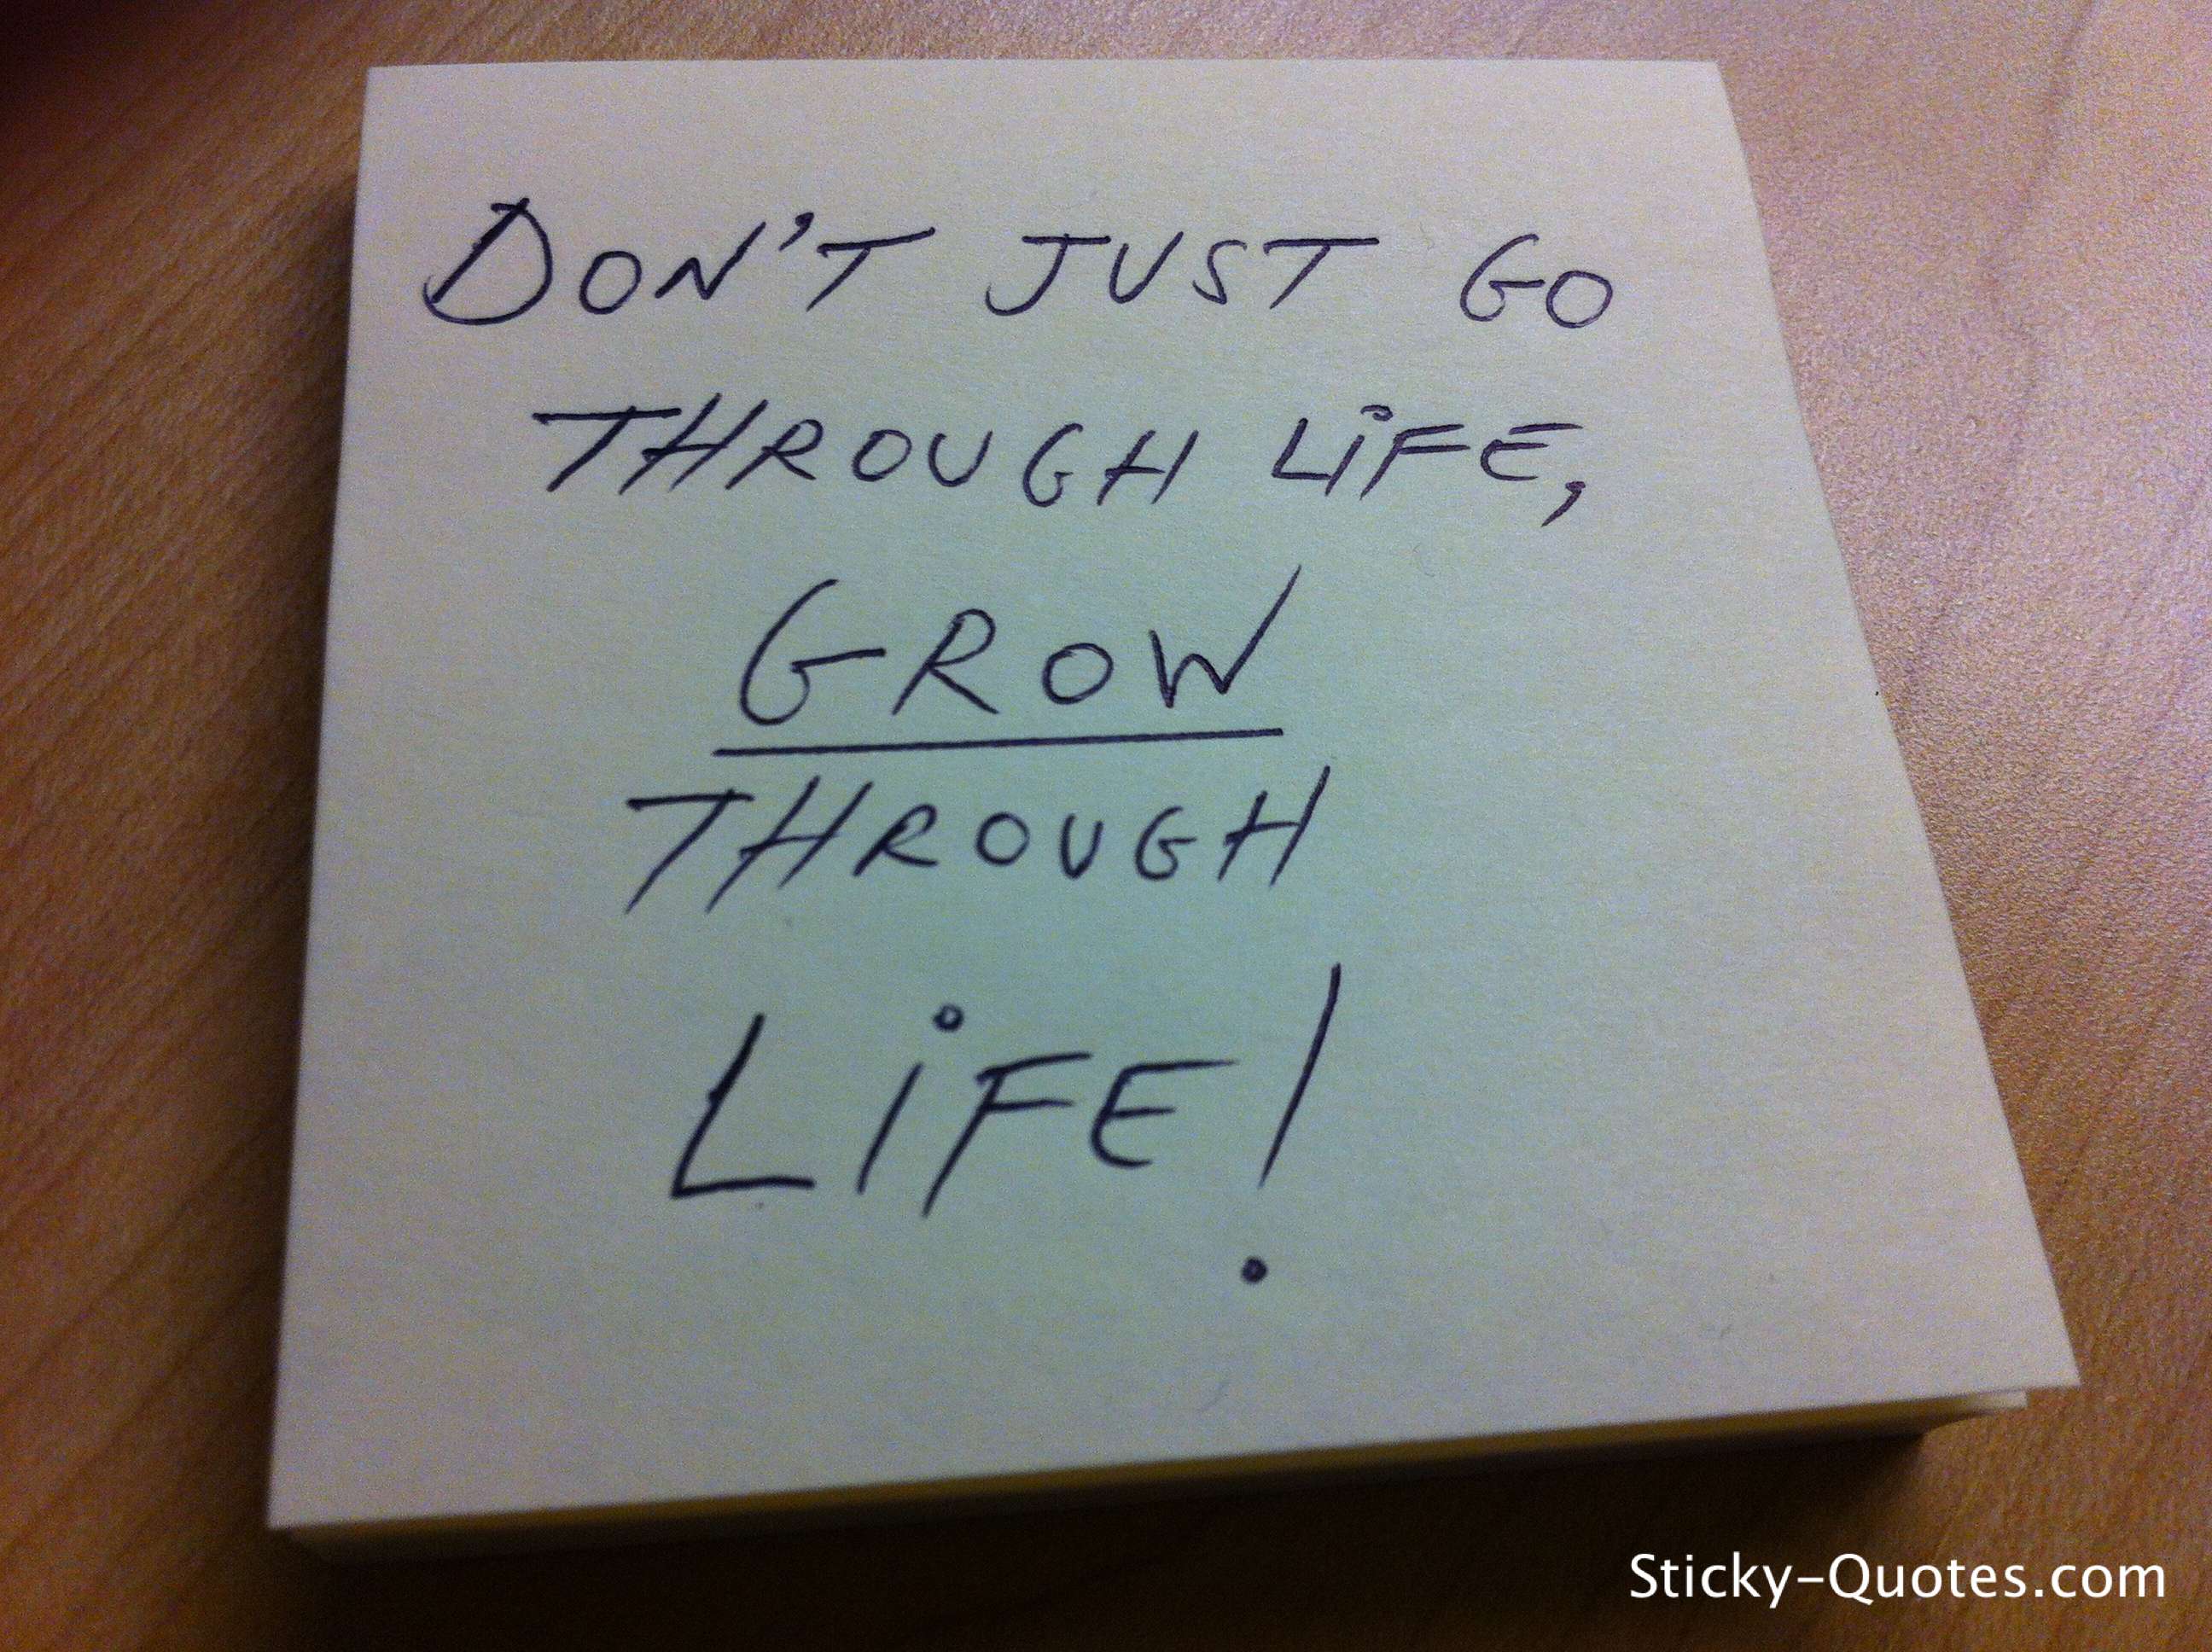 DON'T JUST GO
THROUGH LiFE,
GROW
THROUGH
LiFE!
Sticky-Quotes.com